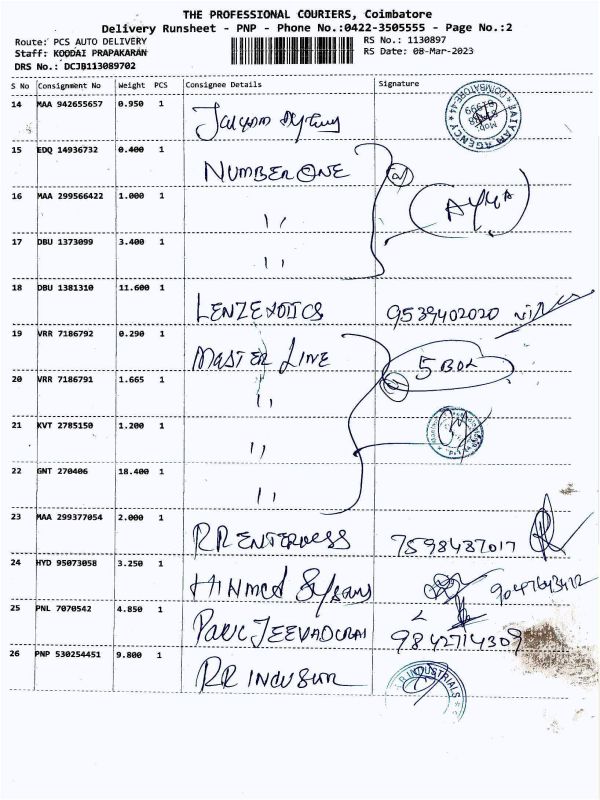 THE PROFESSIONAL COURIERS, Coimbatore
Delivery Runsheet - PNP - Phone No.:0422-3505555 - Page No.:2
Route: PCS AUTO DELIVERY RS No.: 1130897
Staff: KOODAI PRAPAKARAN RS Date: 08-Mar-2023
DRS No.: DCJB113089702
S No Consignment No Weight PCS Consignee Details Signature
14 MAA 942655657 0.950 1
JAIYAM AGENCY COIMBATORE-44
Mob:
15 EDQ 14936732 0.400 1 NUMBER ONE
16 MAA 299566422 1.000 1 ,,
17 DBU 1373099 3.400 1 ,,
18 DBU 1381310 11.600 1 LENZEXOTICS 9539402020
19 VRR 7186792 0.290 1 MASTER LINE 5 BOX
20 VRR 7186791 1.665 1 ,,
21 KVT 2785150 1.200 1 ,,
22 GNT 270406 18.400 1 ,,
23 MAA 299377054 2.000 1 RR 7598437017
24 HYD 95073058 3.250 1 9047643412
25 PNL 7070542 4.850 1 PAUL JEEVADURAI 9842714309
26 PNP 530254451 9.800 1 RR
INDUSTRIALS